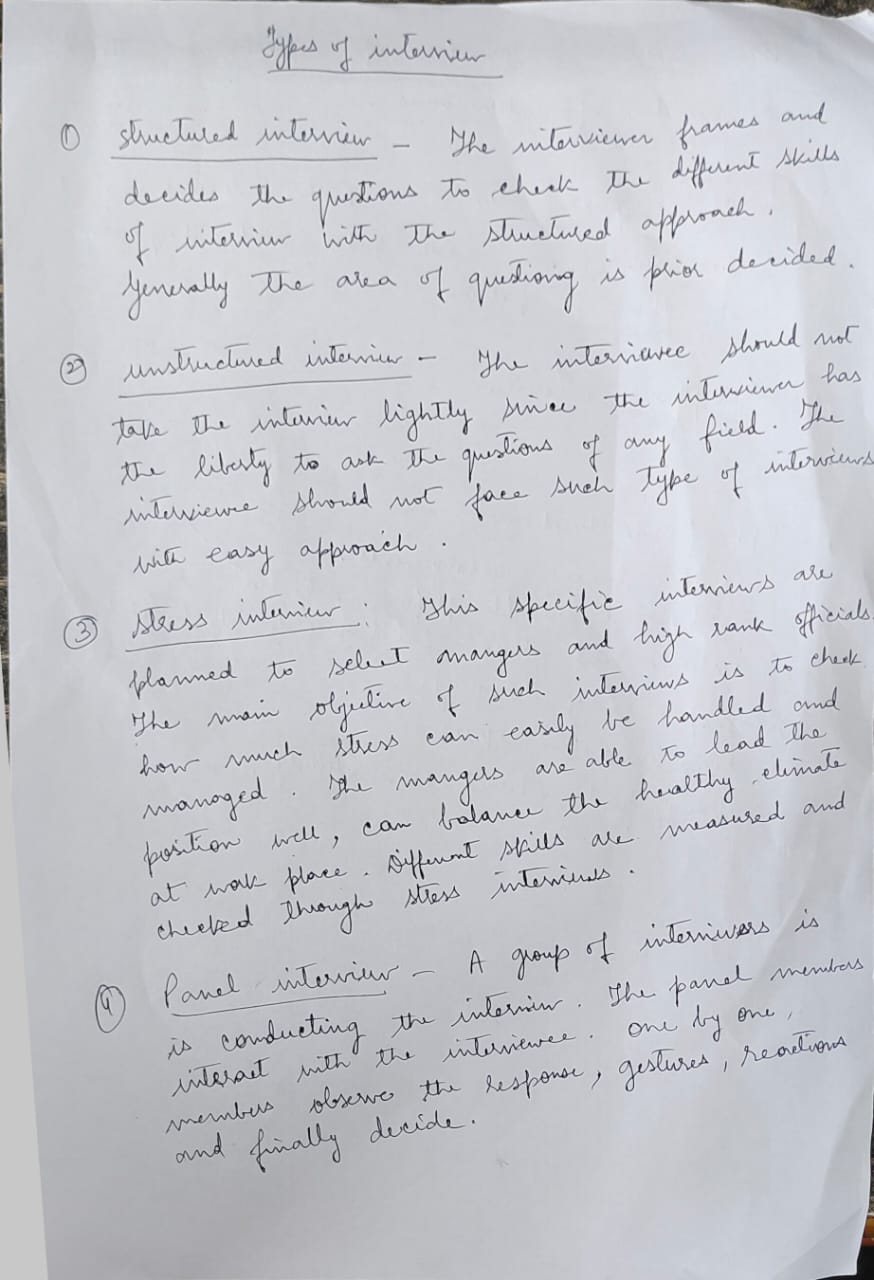 Types of interview
① structured interview – The interviewer frames and
decides the questions to check the different skills
of interview with the structured approach.
Generally the area of questioning is prior decided.
② unstructured interview – The interviewee should not
take the interview lightly since the interviewer has
the liberty to ask the questions of any field. The
interviewee should not face such type of interviews
with easy approach.
③ Stress interview : This specific interviews are
planned to select mangers and high rank officials.
The main objective of such interviews is to check
how much stress can easily be handled and
managed. The mangers are able to lead the
position well, can balance the healthy climate
at work place. Different skills are measured and
checked through stress interviews.
④ Panel interview – A group of interviewers is
is conducting the interview. The panel members
interact with the interviewee. one by one,
members observe the response, gestures, reactions
and finally decide.